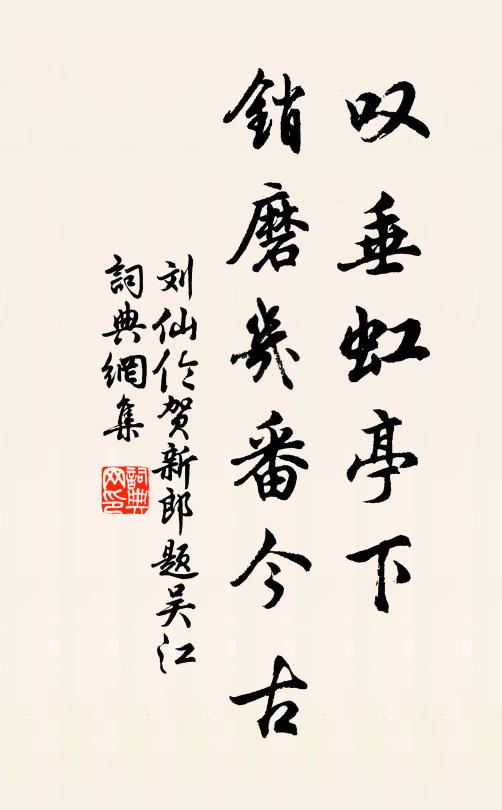 叹垂虹亭下
銷磨幾番今古
刘仙伦贺新郎题吴江
詞典網集
詞典网印